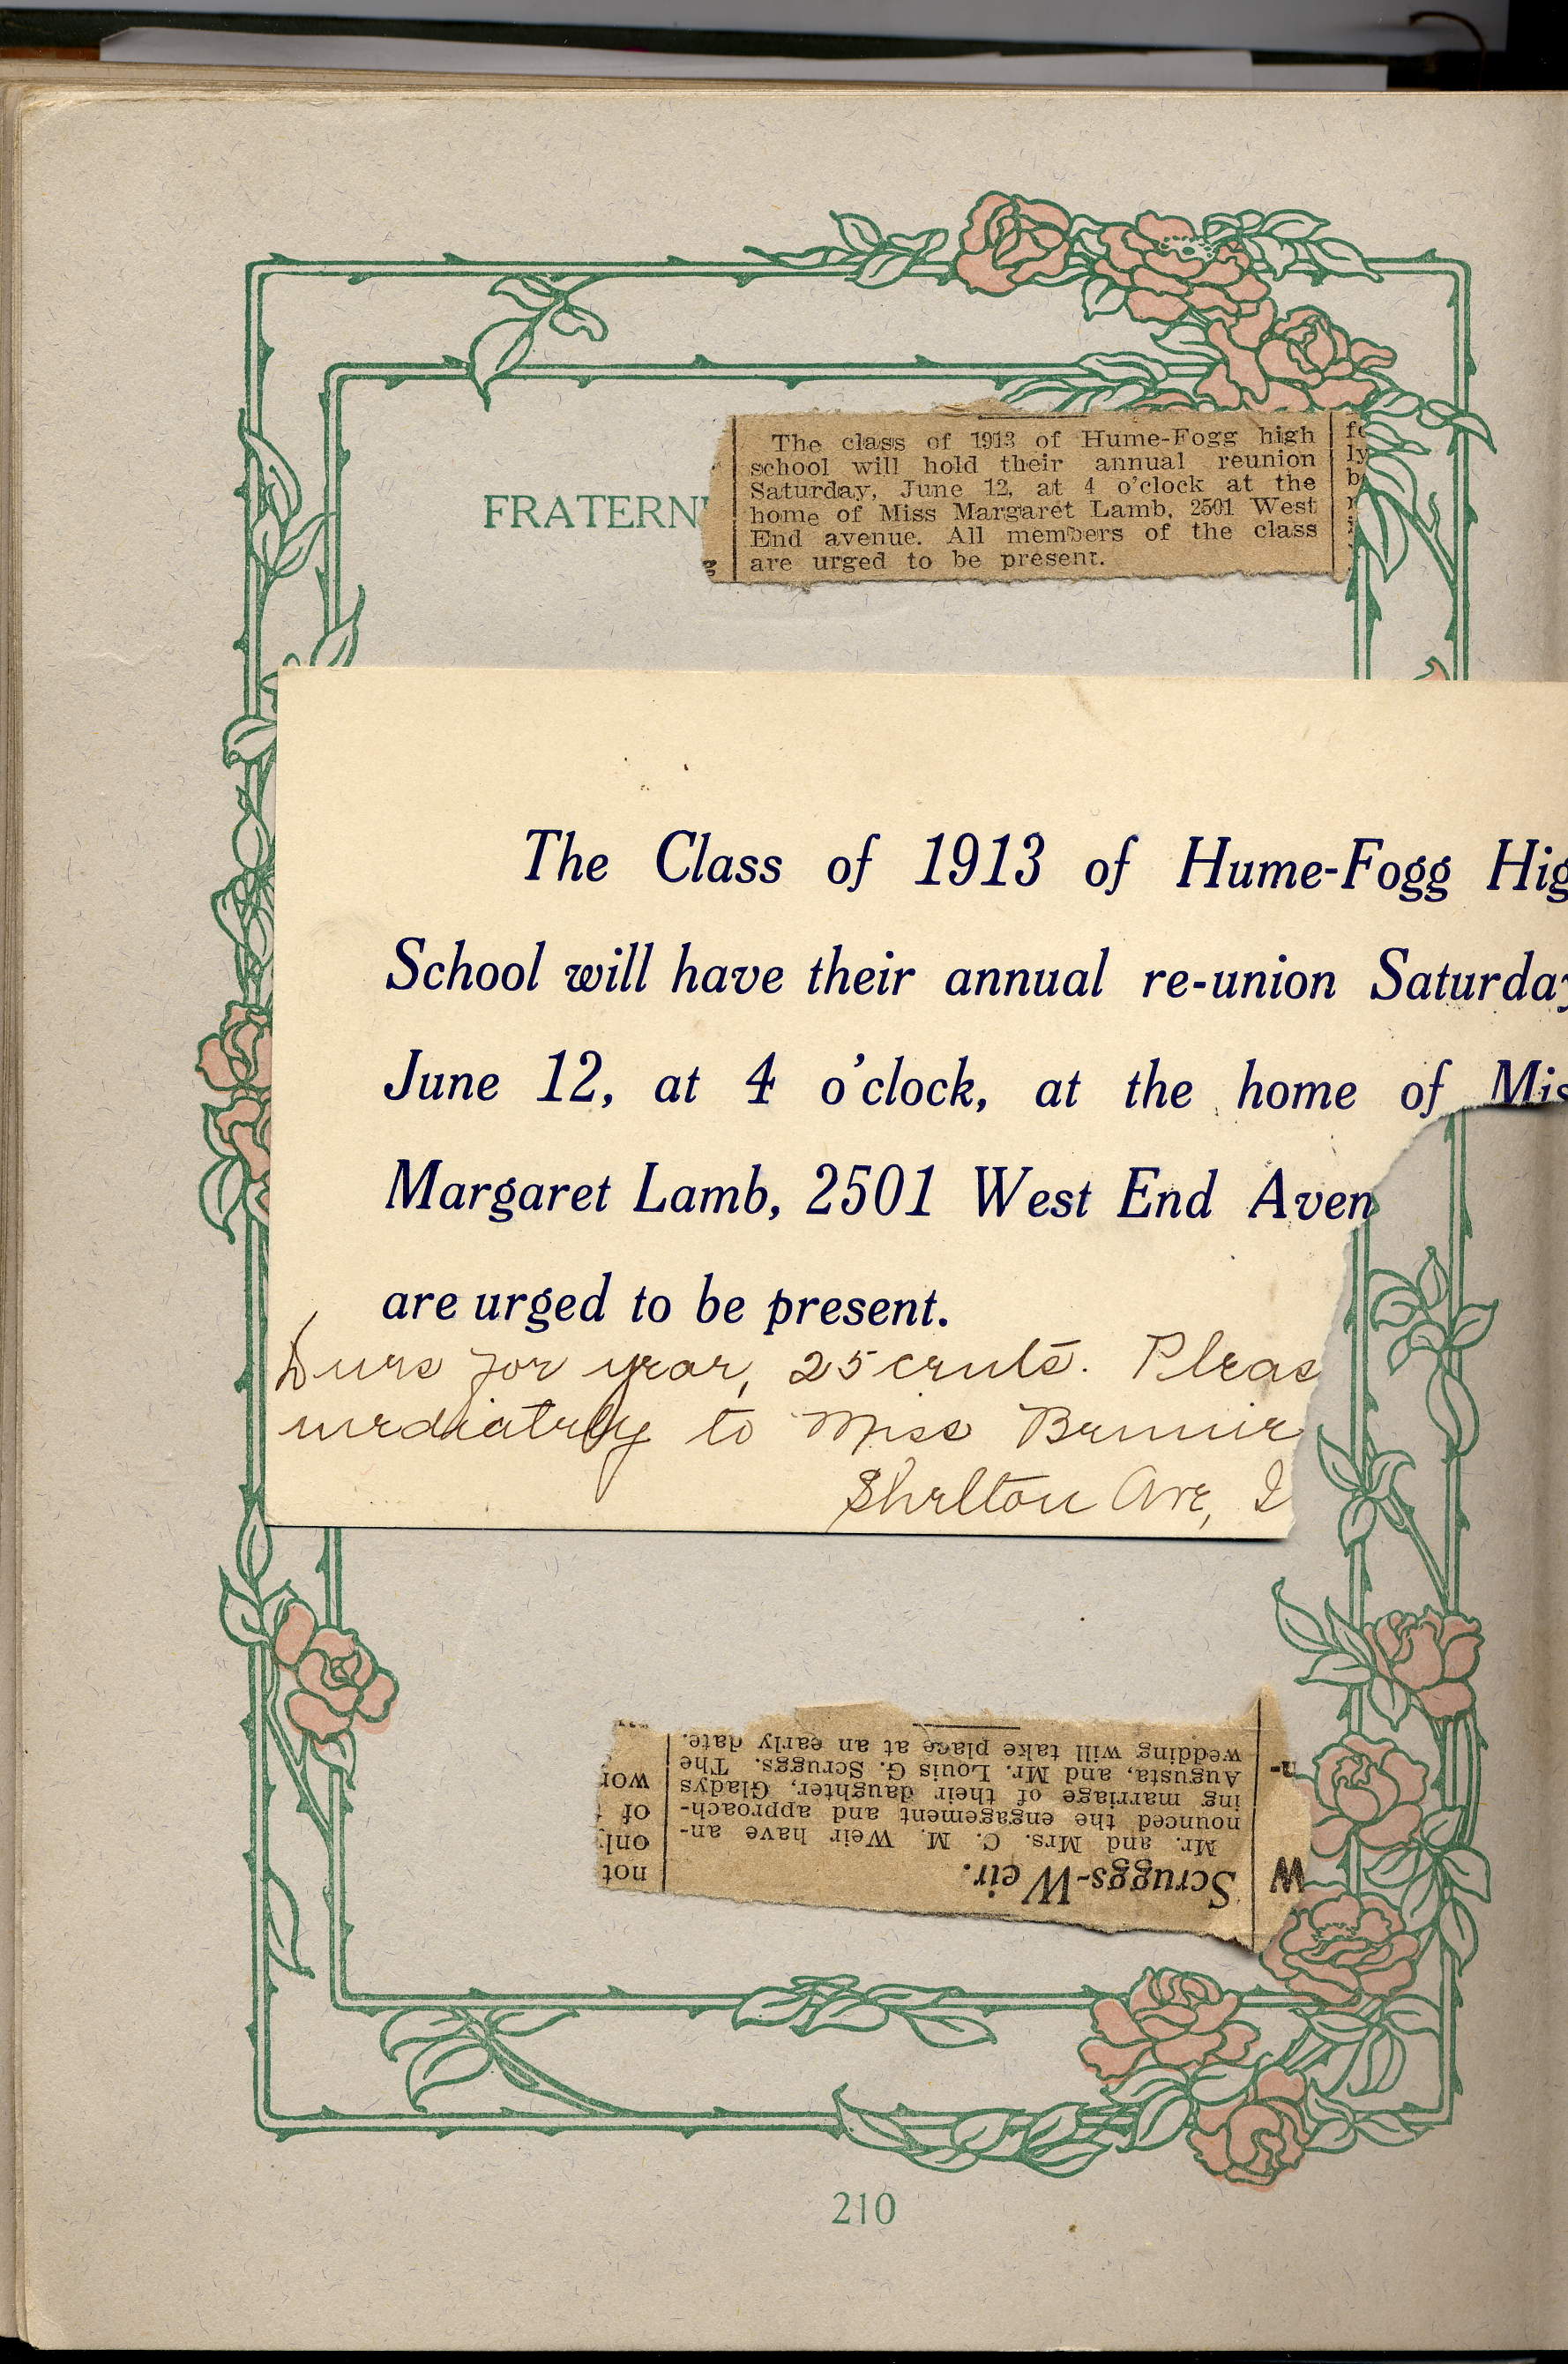 FRATERN
The class of 1913 of Hume-Fogg high
school will hold their annual reunion
Saturday, June 12, at 4 o'clock at the
home of Miss Margaret Lamb, 2501 West
End avenue. All members of the class
are urged to be present.
The Class of 1913 of Hume-Fogg Hig
School will have their annual re-union Saturday
June 12, at 4 o'clock, at the home of Mis
Margaret Lamb, 2501 West End Aven
are urged to be present.
Dues for year, 25 cents. Pleas
mediately to Miss Bennie
Shelton Ave, 
Scruggs-Weir.
Mr. and Mrs. C. M. Weir have an-
nounced the engagement and approach-
ing marriage of their daughter, Gladys
Augusta, and Mr. Louis G. Scruggs. The
wedding will take place at an early date.
W
n-
not
only
of
wor
210